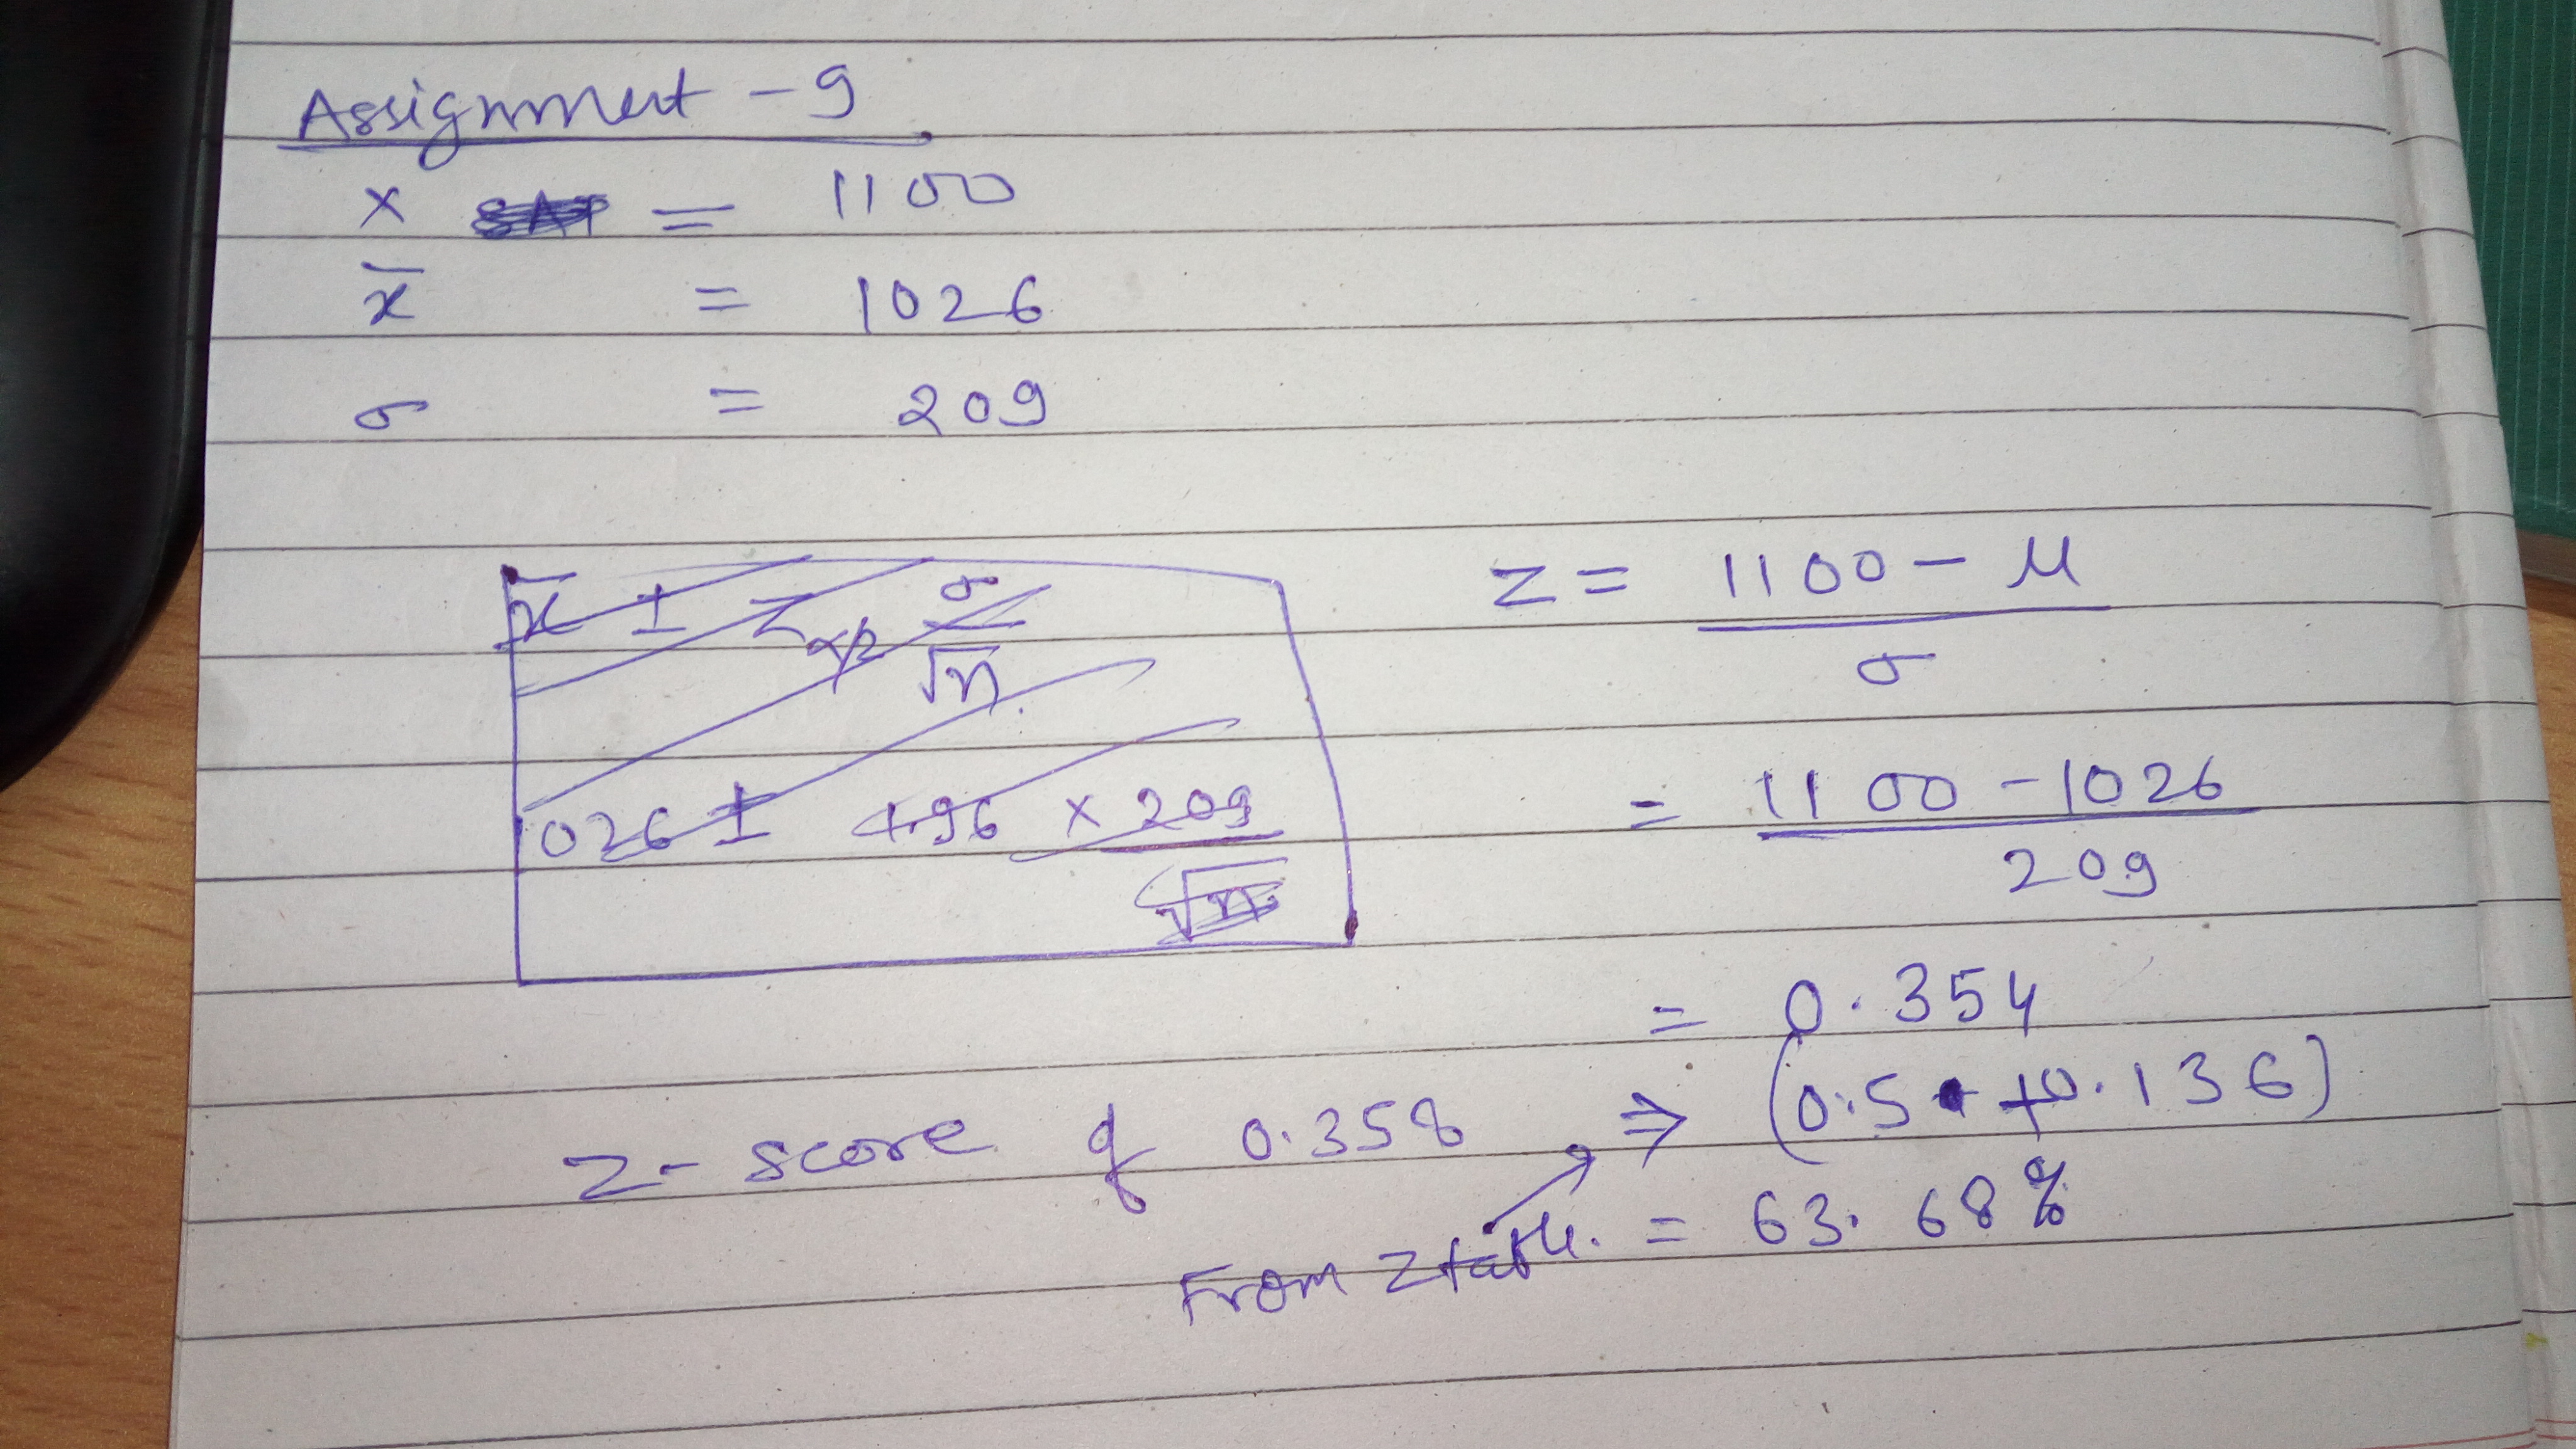 Assignment - 9
x SAT = 1100
x̄ = 1026
σ = 209
x̄ ± Z α/2 σ/√n
z = (1100 - μ)/σ
026 ± 1.96 × 209/√n
= (1100 - 1026)/209
= 0.354
z- score of 0.358 ⇒ (0.5 + 0.136)
From z table. = 63.68%